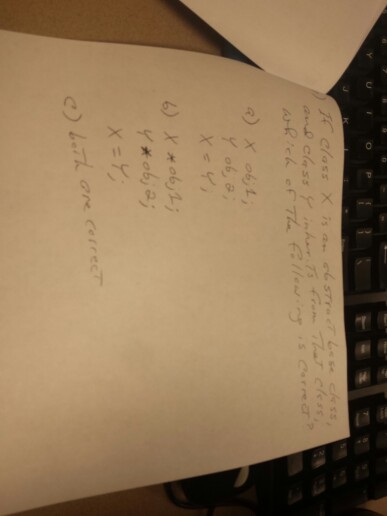 ) If class X is an abstract base class,
and class Y inherits from that class,
which of the following is correct?
a) X ob,1;
Y ob,2;
X = Y;
b) X *ob,1;
Y *ob,2;
X = Y;
c) both are correct